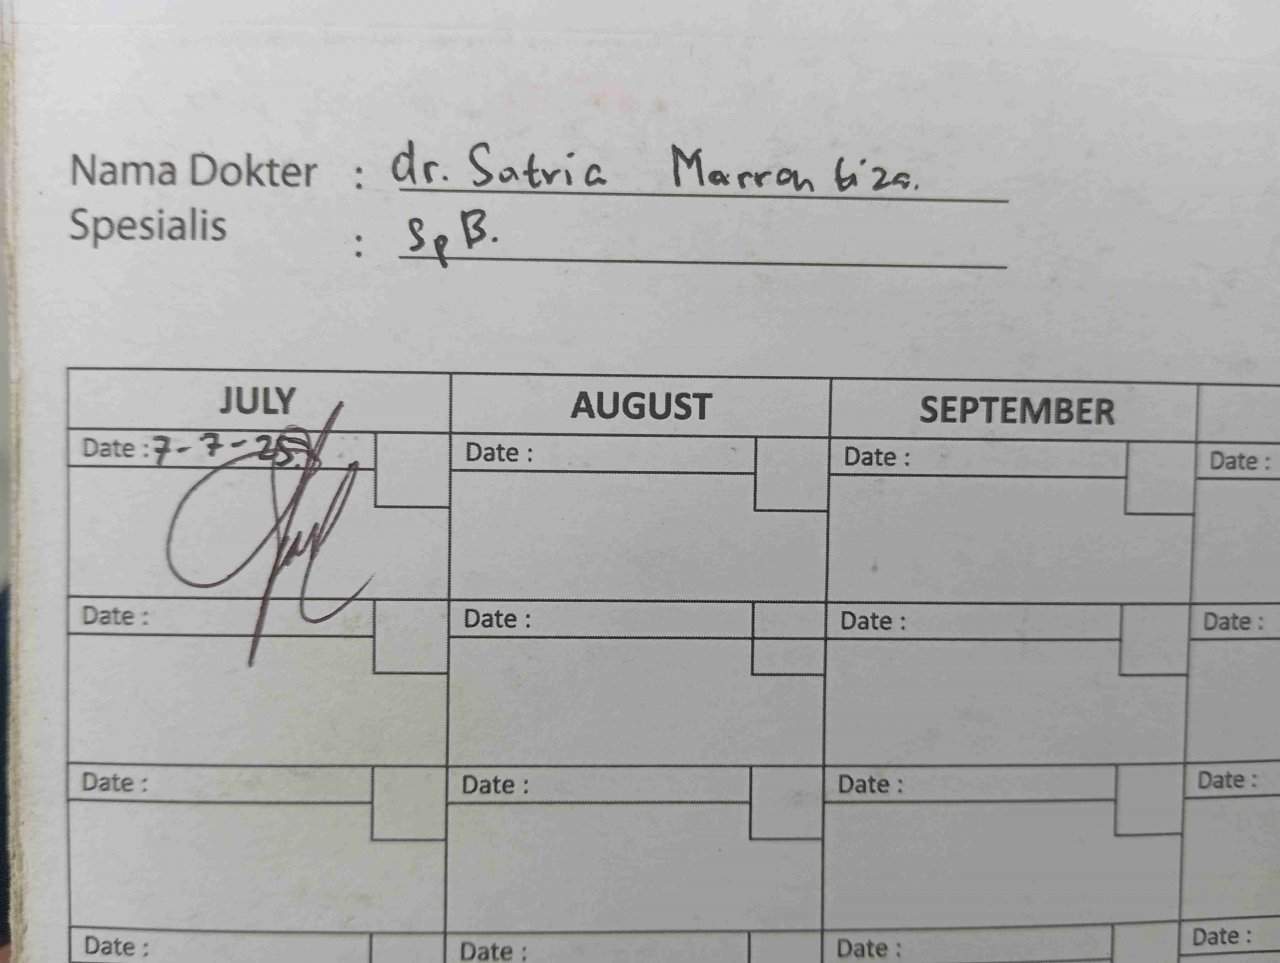 Nama Dokter : dr. Satria Marron tiza.
Spesialis : Sp B.
JULY AUGUST SEPTEMBER
Date : 7-7-25 Date : Date : Date :
Date : Date : Date : Date :
Date : Date : Date : Date :
Date : Date : Date : Date :